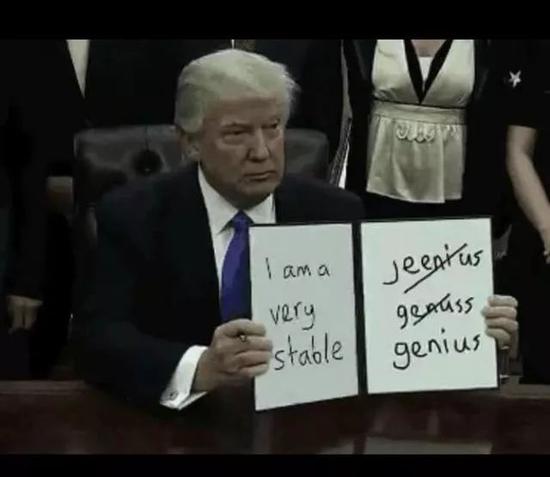 I am a
very
stable
jeenius
genuss
genius